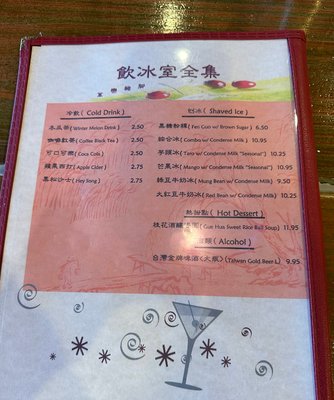 飲冰室全集
冷飲 ( Cold Drink )
冬瓜茶 ( Winter Melon Drink ) 2.50
咖啡紅茶 ( Coffee Black Tea ) 2.50
可口可樂 ( Coca Cola ) 2.50
蘋果西打 ( Apple Cider ) 2.75
黑松沙士 ( Hey Song ) 2.75
刨冰 ( Shaved Ice )
黑糖粉粿 ( Fen Guo w/ Brown Sugar ) 6.50
綜合冰 ( Combo w/ Condense Milk ) 10.25
芋頭冰 ( Taro w/ Condense Milk "Seasonal" ) 10.25
芒果冰 ( Mango w/ Condense Milk "Seasonal" ) 10.25
綠豆牛奶冰 ( Mung Bean w/ Condense Milk ) 9.25
大紅豆牛奶冰 ( Red Bean w/ Condense Milk ) 10.25
熱甜點 ( Hot Dessert )
桂花酒釀湯圓 ( Gue Hua Sweet Rice Ball Soup ) 11.95
( Alcohol )
台灣金牌啤酒 <大瓶> ( Taiwan Gold Beer L ) 9.95